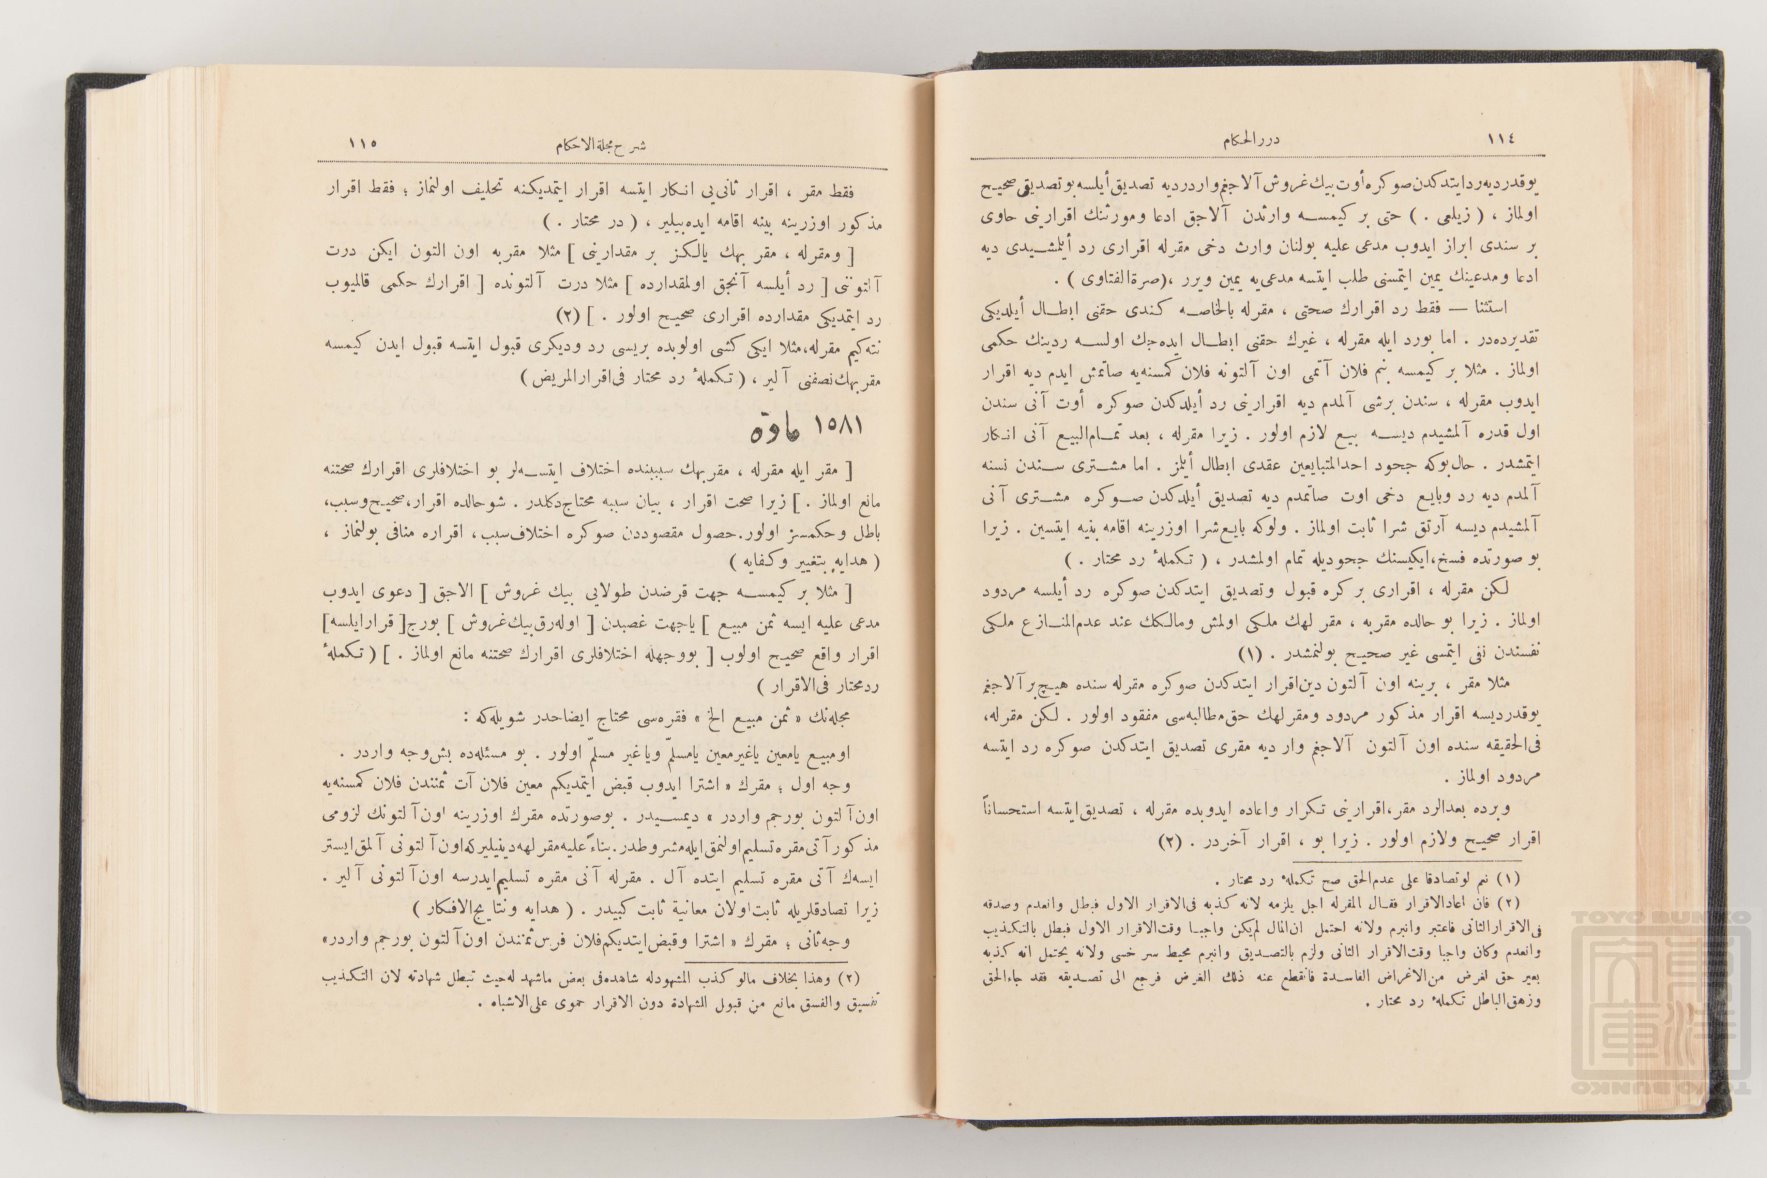 ١١٤
دررالحكام
يوقدرديه‌ردايتدكدن‌صوكره‌أوت‌بيك‌غروش‌آلاجغم‌واردرديه تصديق‌أيلسه‌بوتصديق‌صحيح
اولماز ، ( زيلعى . ) حتى بر كيمسه وارثدن آلاجق ادعا ومورثنك اقرارينى حاوى
بر سندى ابراز ايدوب مدعى عليه بولنان وارث دخى مقرله اقرارى رد أيلمشيدى ديه
ادعا ومدعينك يمين ايتمسنى طلب ايتسه مدعى‌يه يمين ويرر ،(صرةالفتاوى ) .
استثنا — فقط رد اقرارك صحتى ، مقرله بالخاصه كندى حقنى ابطال أيلديكى
تقديرده‌در . اما بورد ايله مقرله ، غيرك حقنى ابطال ايده‌جك اولسه ردينك حكمى
اولماز . مثلا بر كيمسه بنم فلان آتمى اون آلتونه فلان كمسنه‌يه صاتمش ايدم ديه اقرار
ايدوب مقرله ، سندن برشى آلمدم ديه اقرارينى رد أيلدكدن صوكره أوت آنى سندن
اول قدره آلمشيدم ديسه بيع لازم اولور . زيرا مقرله ، بعد تمام‌البيع آنى انكار
ايتمشدر . حال‌بوكه جحود احدالمتبايعين عقدى ابطال أيلمز . اما مشترى سندن نسنه
آلمدم ديه رد وبايع دخى اوت صاتمدم ديه تصديق أيلدكدن صوكره مشترى آنى
آلمشيدم ديسه آرتق شرا ثابت اولماز . ولوكه بايع‌شرا اوزرينه اقامه بينه ايتسين . زيرا
بو صورتده فسخ،ايكيسنك جحوديله تمام اولمشدر ، ( تكملهٔ رد محتار . )
لكن مقرله ، اقرارى بر كره قبول وتصديق ايتدكدن صوكره رد أيلسه مردود
اولماز . زيرا بو حالده مقربه ، مقر لهك ملكى اولمش ومالكك عند عدم‌المنازع ملكى
نفسندن نفى ايتمسى غير صحيح بولنمشدر . (١)
مثلا مقر ، برينه اون آلتون دين‌اقرار ايتدكدن صوكره مقرله سنده هيچ‌برآلاجغم
يوقدرديسه اقرار مذكور مردود ومقرلهك حق‌مطالبه‌سى مفقود اولور . لكن مقرله،
فى‌الحقيقه سنده اون آلتون آلاجغم وار ديه مقرى تصديق ايتدكدن صوكره رد ايتسه
مردود اولماز .
وبرده بعدالرد مقر،اقرارينى تكرار واعاده ايدوبده مقرله ، تصديق‌ايتسه استحساناً
اقرار صحيح ولازم اولور . زيرا بو ، اقرار آخردر . (٢)
(١) نعم لوتصادقا على عدم‌الحق صح تكملهٔ رد محتار .
(٢) فان اعادالاقرار فقال المقرله اجل يلزمه لانه كذبه فى‌الاقرار الاول فبطل وانعدم وصدقه
فى الاقرارالثانى فاعتبر وانبرم ولانه احتمل ان‌المال لم‌يكن واجبا وقت‌الاقرار الاول فبطل بالتكذيب
وانعدم وكان واجبا وقت‌الاقرار الثانى ولزم بالتصديق وانبرم محيط سر خسى ولانه يحتمل انه كذبه
بغير حق لغرض من‌الاغراض الفاسدة فانقطع عنه ذلك الغرض فرجع الى تصديقه فقد جاءالحق
وزهق‌الباطل تكملهٔ رد محتار .
شرح مجلةالاحكام
١١٥
فقط مقر ، اقرار ثانى‌يى انكار ايتسه اقرار ايتمديكنه تحليف اولنماز ؛ فقط اقرار
مذكور اوزرينه بينه اقامه ايده‌بيلير ، ( در مختار . )
[ ومقرله ، مقر بهك يالكز بر مقدارينى ] مثلا مقربه اون التون ايكن درت
آلتوننى [ رد أيلسه آنجق اولمقدارده ] مثلا درت آلتونده [ اقرارك حكمى قالميوب
رد ايتمديكى مقدارده اقرارى صحيح اولور . ] (٢)
نته‌كيم مقرله،مثلا ايكى كشى اولوبده بريسى رد وديكرى قبول ايتسه قبول ايدن كيمسه
مقربهك‌نصفنى آلير ، ( تكملهٔ رد محتار فى‌اقرارالمريض )
١٥٨١ مادّه
[ مقر ايله مقرله ، مقربهك سببنده اختلاف ايتسه‌لر بو اختلافلرى اقرارك صحتنه
مانع اولماز . ] زيرا صحت اقرار ، بيان سببه محتاج‌دكلدر . شوحالده اقرار،صحيح‌وسبب،
باطل وحكمسز اولور.حصول مقصوددن صوكره اختلاف‌سبب، اقراره منافى بولنماز ،
( هدايه بتغيير وكفايه )
[ مثلا بر كيمسه جهت قرضدن طولايى بيك غروش ] الاجق [ دعوى ايدوب
مدعى عليه ايسه ثمن مبيع ] ياجهت غصبدن [ اوله‌رق‌بيك‌غروش ] بورج[ قرارايلسه]
اقرار واقع صحيح اولوب [ بووجهله اختلافلرى اقرارك صحتنه مانع اولماز . ] ( تكملهٔ
ردمحتار فى‌الاقرار )
مجله‌نك « ثمن مبيع الخ » فقره‌سى محتاج ايضاحدر شويله‌كه :
اومبيع يامعين ياغيرمعين يامسلّم وياغير مسلّم اولور . بو مسئله‌ده بش‌وجه واردر .
وجه اول ؛ مقرك « اشترا ايدوب قبض ايتمديكم معين فلان آت ثمنندن فلان كمسنه‌يه
اون‌آلتون بورجم واردر » ديمسيدر . بوصورتده مقرك اوزرينه اون‌آلتونك لزومى
مذكورآتى مقره‌تسليم‌اولنمق‌ايله‌مشروطدر.بناءً‌عليه‌مقرلهه‌دينيليركه‌اون‌آلتونى آلمق‌ايستر
ايسه‌ك آتى مقره تسليم ايتده آل . مقرله آتى مقره تسليم‌ايدرسه اون‌آلتونى آلير .
زيرا تصادقلريله ثابت‌اولان معاينة ثابت كبيدر . ( هدايه ونتايج‌الافكار )
وجه‌ثانى ؛ مقرك « اشترا وقبض‌ايتديكم‌فلان فرس‌ثمنندن اون‌آلتون بورجم واردر»
(٢) وهذا بخلاف مالو كذب المشهودله شاهده‌فى بعض ماشهد له‌حيث تبطل شهادته لان التكذيب
تفسيق والفسق مانع من قبول الشهادة دون الاقرار حموى على‌الاشباه .
TOYO BUNKO